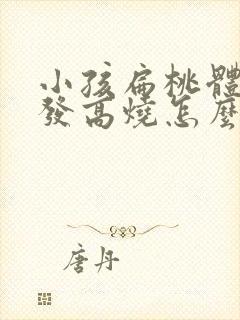 小孩扁桃體
發高燒怎麼
唐丹